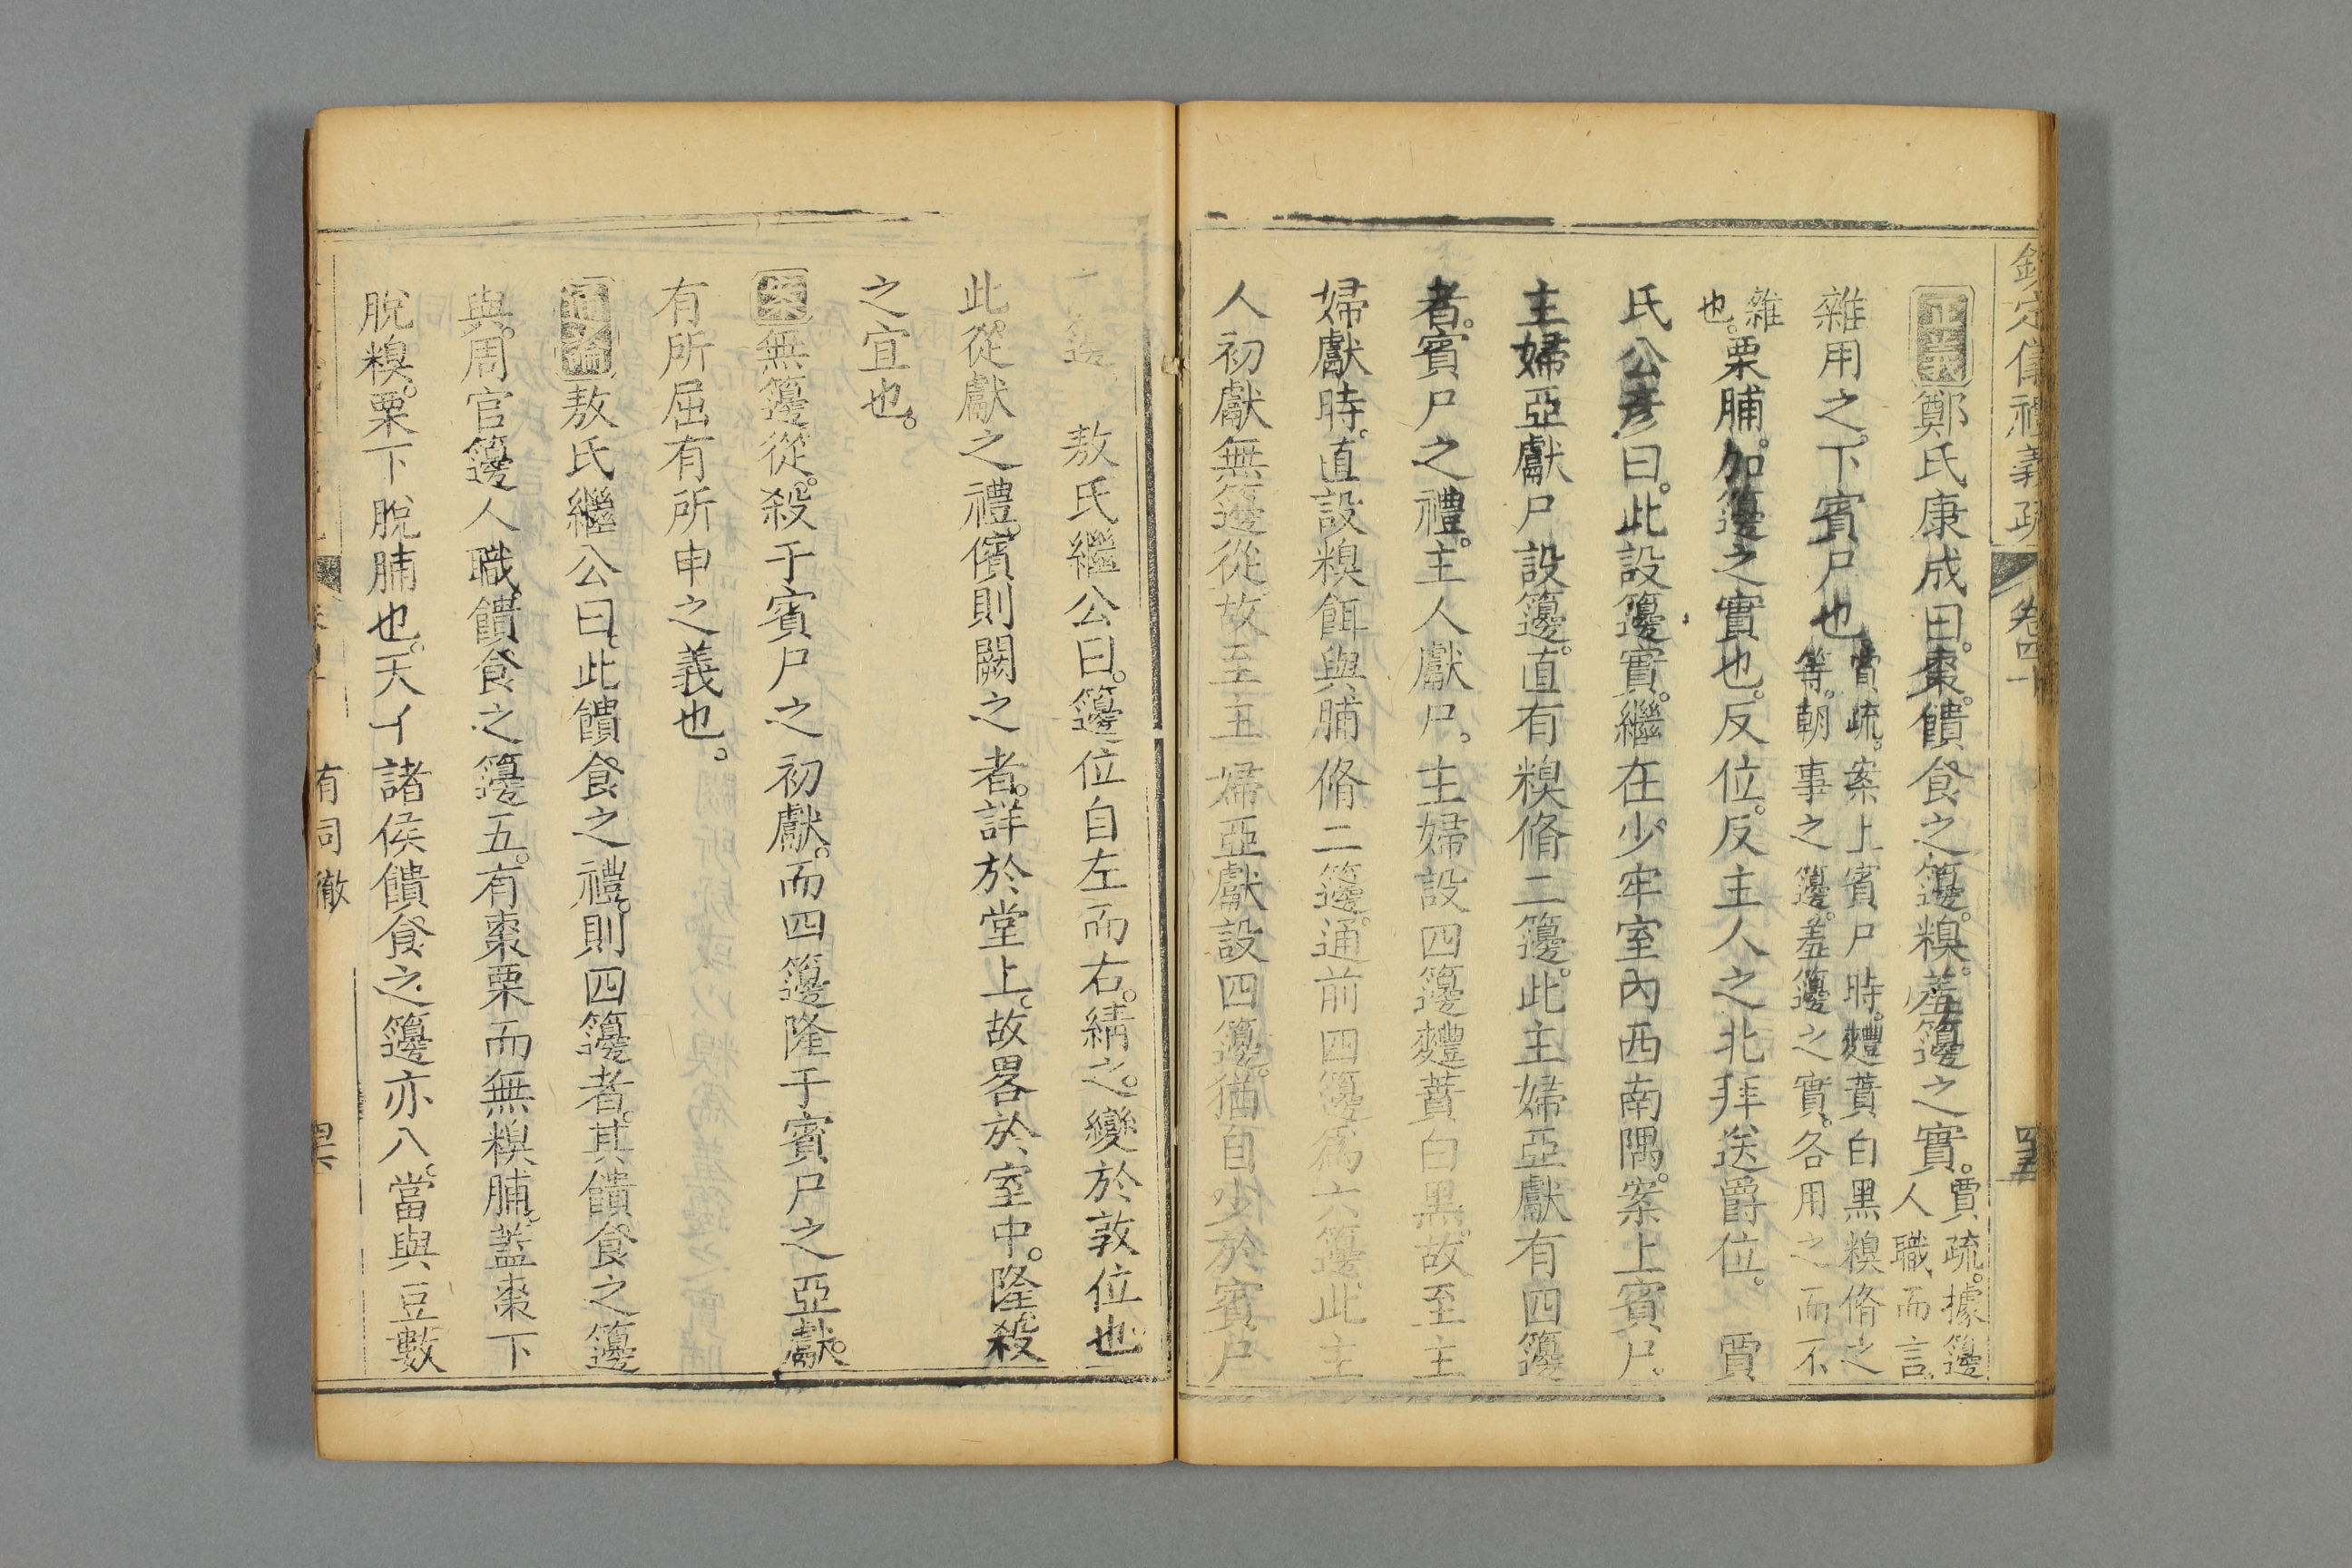 欽定儀禮義疏 卷四十 四五
正義鄭氏康成曰。棗饋食之籩。糗。羞籩之實。賈疏。據籩人職而言。
雜用之。下賓尸也。賈疏。案上賓尸時。麷蕡白黑糗脩之等。朝事之籩。羞籩之實。各用之而不
雜也。栗脯。加籩之實也。反位。反主人之北拜送爵位。 賈
氏公彥曰。此設籩實。繼在少牢室內西南隅。案上賓尸。
主婦亞獻尸設籩。直有糗脩二籩。此主婦亞獻有四籩
者。賓尸之禮。主人獻尸。主婦設四籩麷蕡白黑。故至主
婦獻時。直設糗餌與脯脩二籩。通前四籩爲六籩此主
人初獻無籩從。故至主婦亞獻設四籩。猶自少於賓尸
籩 敖氏繼公曰。籩位自左而右。綪之。變於敦位也
此從獻之禮。儐則闕之者。詳於堂上。故畧於室中。隆殺
之宜也。
案無籩從。殺于賓尸之初獻。而四籩隆于賓尸之亞獻。
有所屈有所申之義也。
通論敖氏繼公曰。此饋食之禮。則四籩者。其饋食之籩
與。周官籩人職。饋食之籩五。有棗栗而無糗脯。葢棗下
脫糗。栗下脫脯也。天子諸侯饋食之籩亦八。當與豆數
有司徹